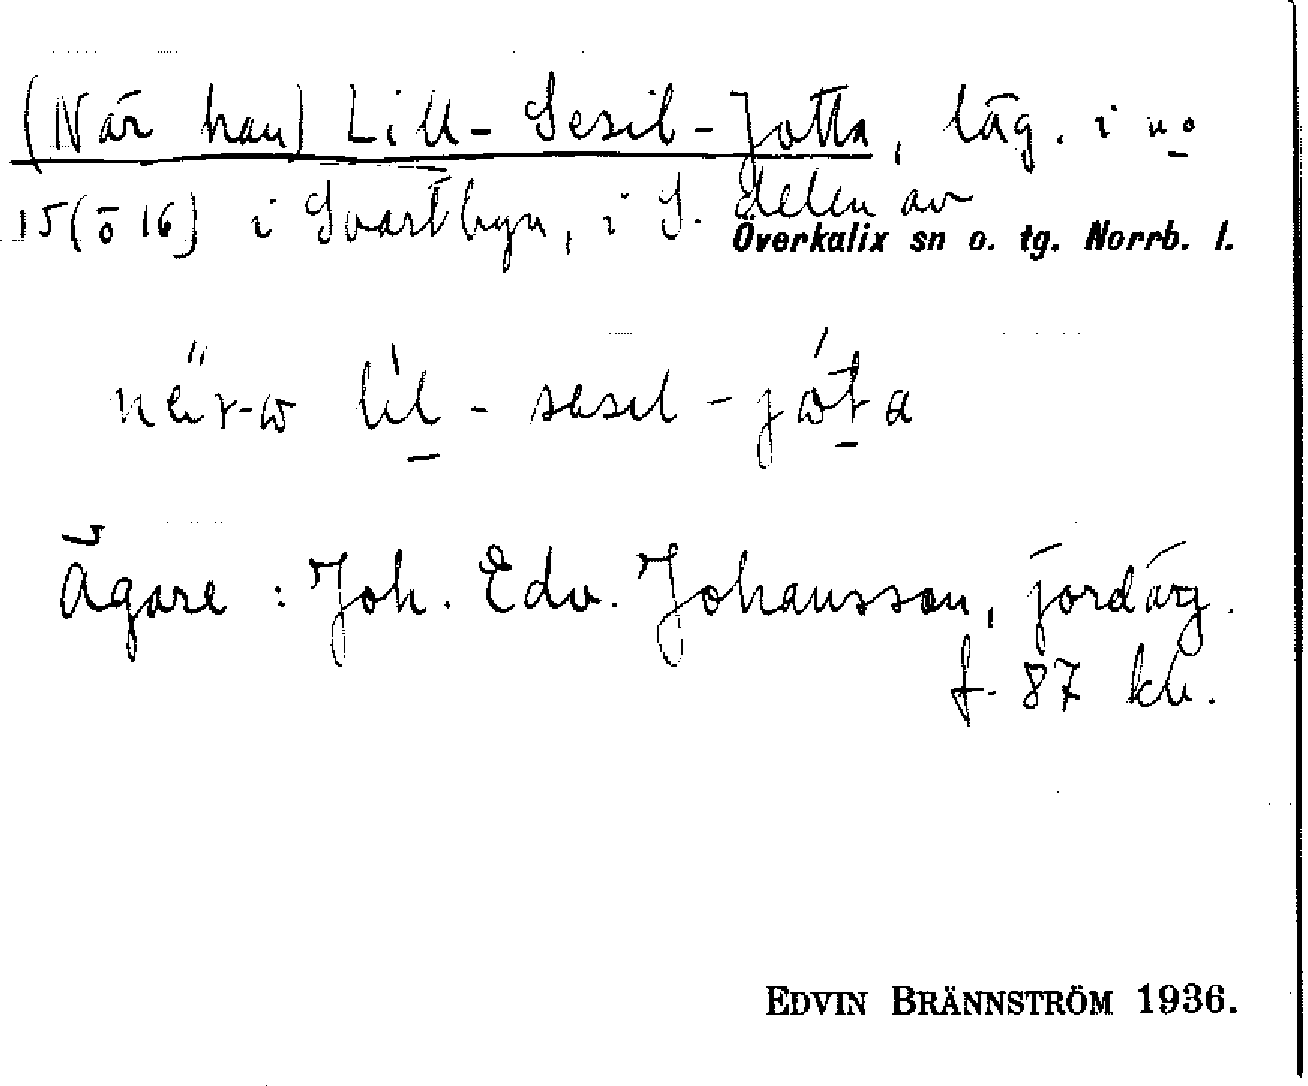 (När han) Lill-Sesil-Jotta, läg. i no
15(ö 16) i Svartbyn, i S. delen av
Överkalix sn o. tg. Norrb. l.
lil - sesil - jota
Ägare : Joh. Edv. Johansson, jordäg.
f. 87 kh.
EDVIN BRÄNNSTRÖM 1936.